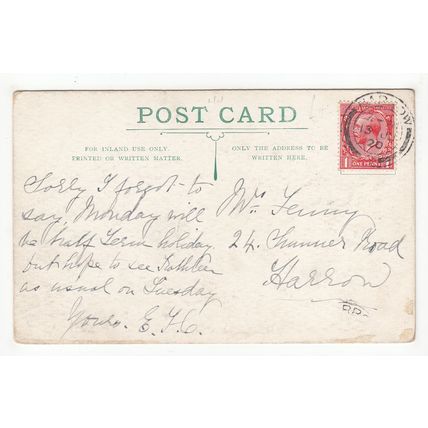 POST CARD
FOR INLAND USE ONLY.
PRINTED OR WRITTEN MATTER.
ONLY THE ADDRESS TO BE
WRITTEN HERE.
HARROW
20
1 ONE PENNY 1
Sorry I forgot to
say, Monday will
be half Term holiday.
but hope to see Kathleen
as usual on Tuesday
Yours. E.
Mrs
24. Road
Harrow